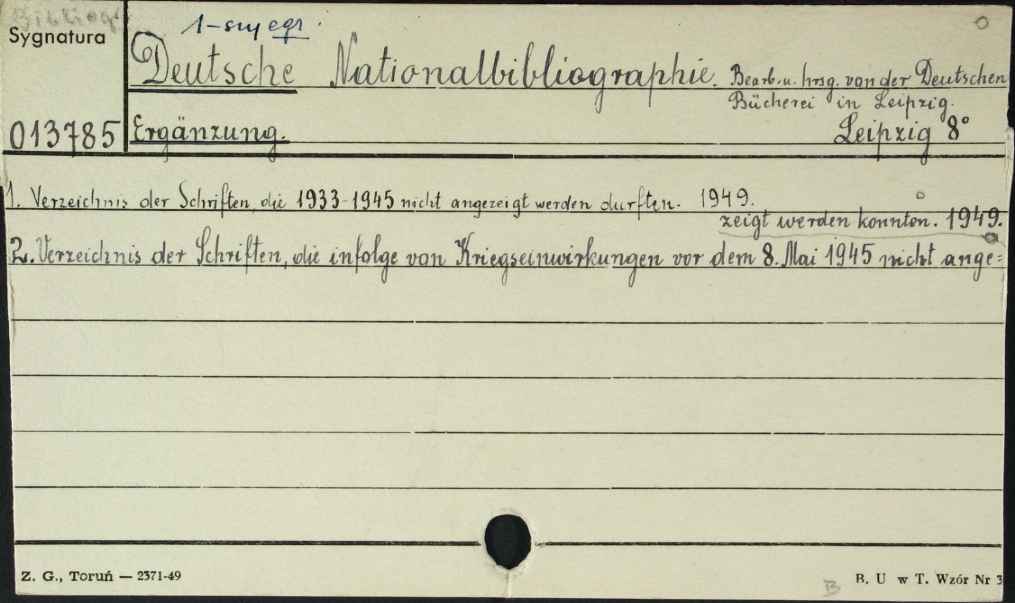 Bibliogr.
Sygnatura
1-szy egz.
Deutsche Nationalbibliographie. Bearb. u. hrsg. von der Deutschen
Bücherei in Leipzig.
013785 Ergänzung. Leipzig 8°
1. Verzeichnis der Schriften, die 1933-1945 nicht angezeigt werden durften. 1949.
zeigt werden konnten. 1949.
2. Verzeichnis der Schriften, die infolge von Kriegseinwirkungen vor dem 8. Mai 1945 nicht ange=
Z. G., Toruń — 2371-49
B
B. U w T. Wzór Nr 3